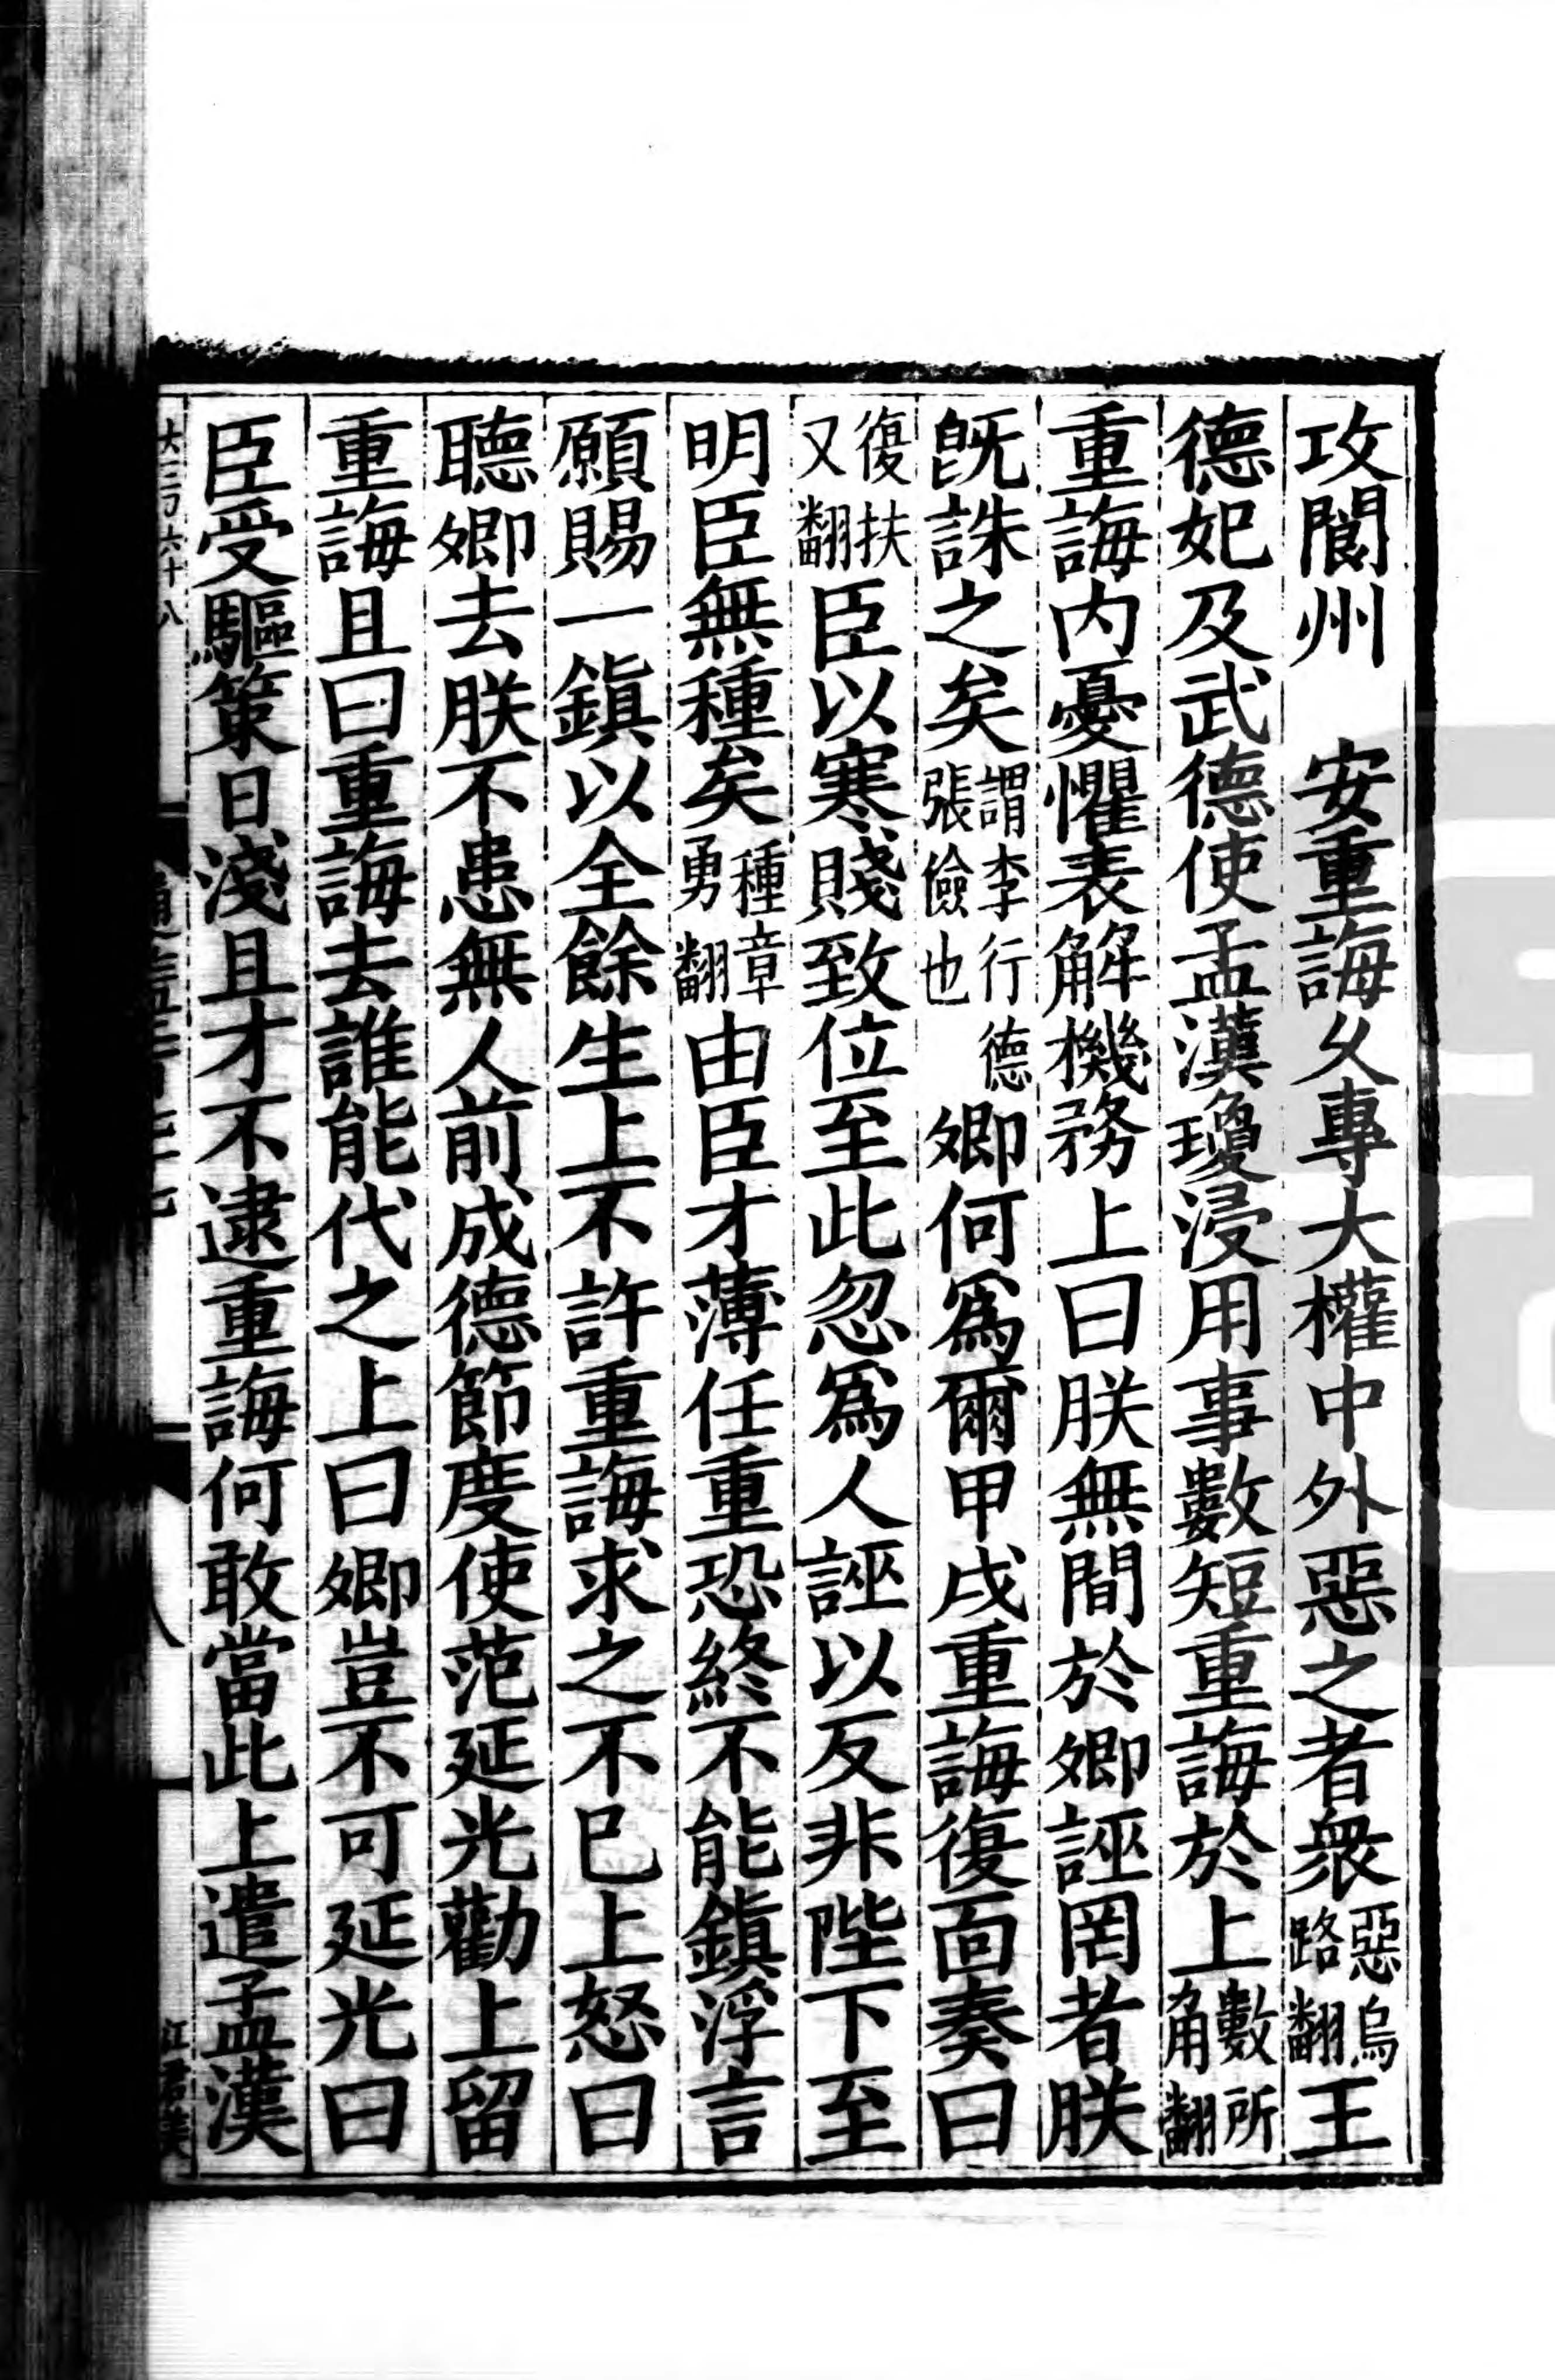 攻閬州　安重誨乆專大權中外惡之者衆惡烏路翻王
德妃及武德使孟漢瓊浸用事數短重誨於上數所角翻
重誨内憂懼表解機務上曰朕無間於卿誣罔者朕
旣誅之矣謂李行德張儉也卿何爲爾甲戌重誨復面奏曰
復扶又翻臣以寒賤致位至此忽爲人誣以反非陛下至
明臣無種矣種章勇翻由臣才薄任重恐終不能鎭浮言
願賜一鎭以全餘生上不許重誨求之不已上怒曰
聽卿去朕不患無人前成德節度使范延光勸上留
重誨且曰重誨去誰能代之上曰卿豈不可延光曰
臣受驅策日淺且才不逮重誨何敢當此上遣孟漢